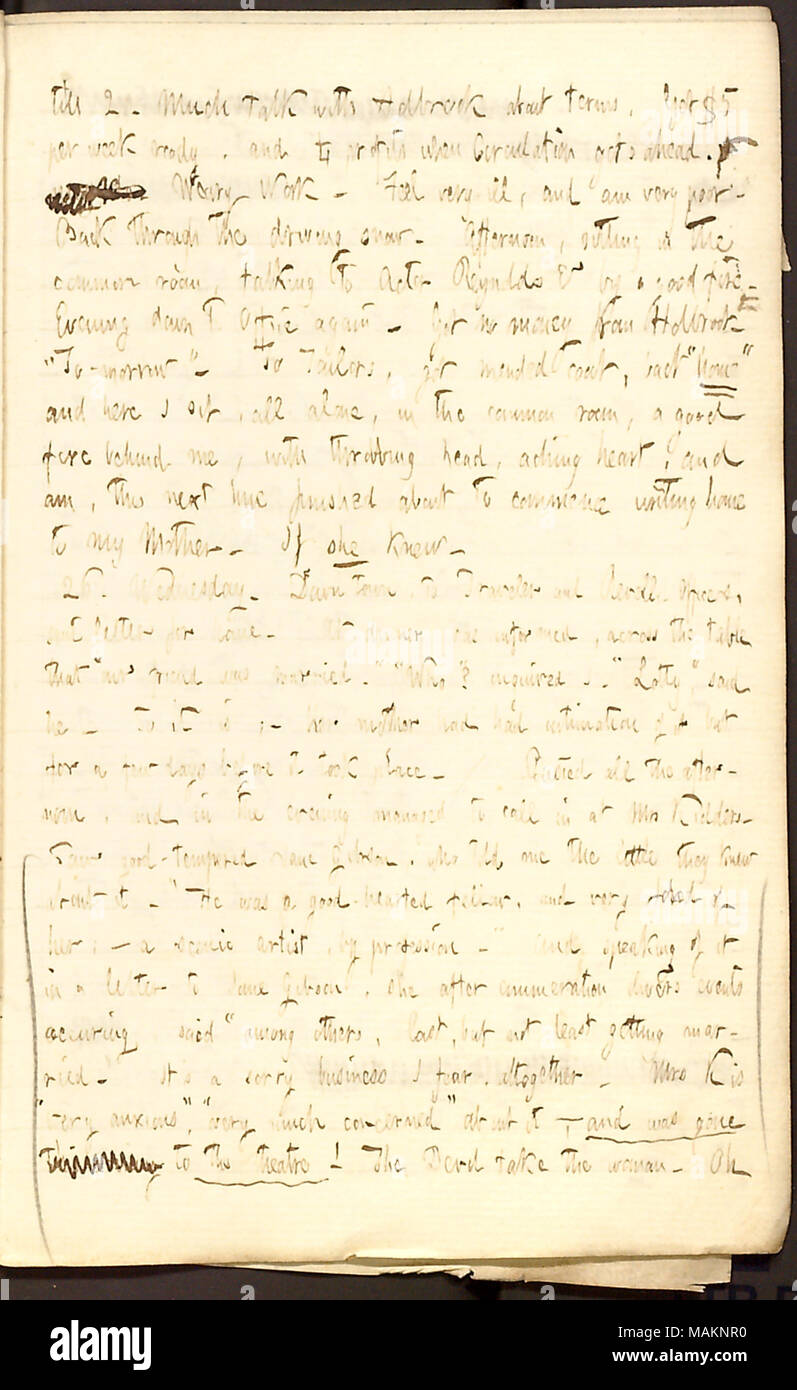 till 2. Much talk with Holbrook about terms. Get $5
per week ready, and ¼ profits when Circulation gets ahead.
Weary Work – Feel very ill, and am very poor –
Back through the driving snow – Afternoon, sitting in the
common room, talking to Actor Reynolds &c by a good fire –
Evening down to Office again – Got no money from Holbrook
"To-morrow" – To Tailors, got mended coat, back "home"
and here I sit, all alone, in the common room, a good
fire behind me, with throbbing head, aching heart, and
am, this next line finished about to commence writing home
to my Mother – If she knew –
26. Wednesday – Down town, to Traveller and Offices,
letter for – At dinner was informed, across the table
that "my friend was married." "Who"? inquired I. "Lotty," said
he – So it is; – her mother had had intimation of it but
for a few days before it took place – Busied all the after-
noon, and in the evening managed to call in at Mrs Kidders –
Saw good-tempered Jane Gibson, who told me the little they knew
about it – "He was a good hearted fellow, and very fond of
her; – a scenic artist, by profession –" And speaking of it
in a letter to Jane Gibson, she after enumeration divers events
occuring said "among others, last, but not least getting mar-
ried –" It's a sorry business I fear, altogether – Mrs K is
"very anxious", "very much concerned" about it – and was gone
to the theatre! The Devil take the woman – Oh
alamy
Image ID: MAKNR0
www.alamy.com